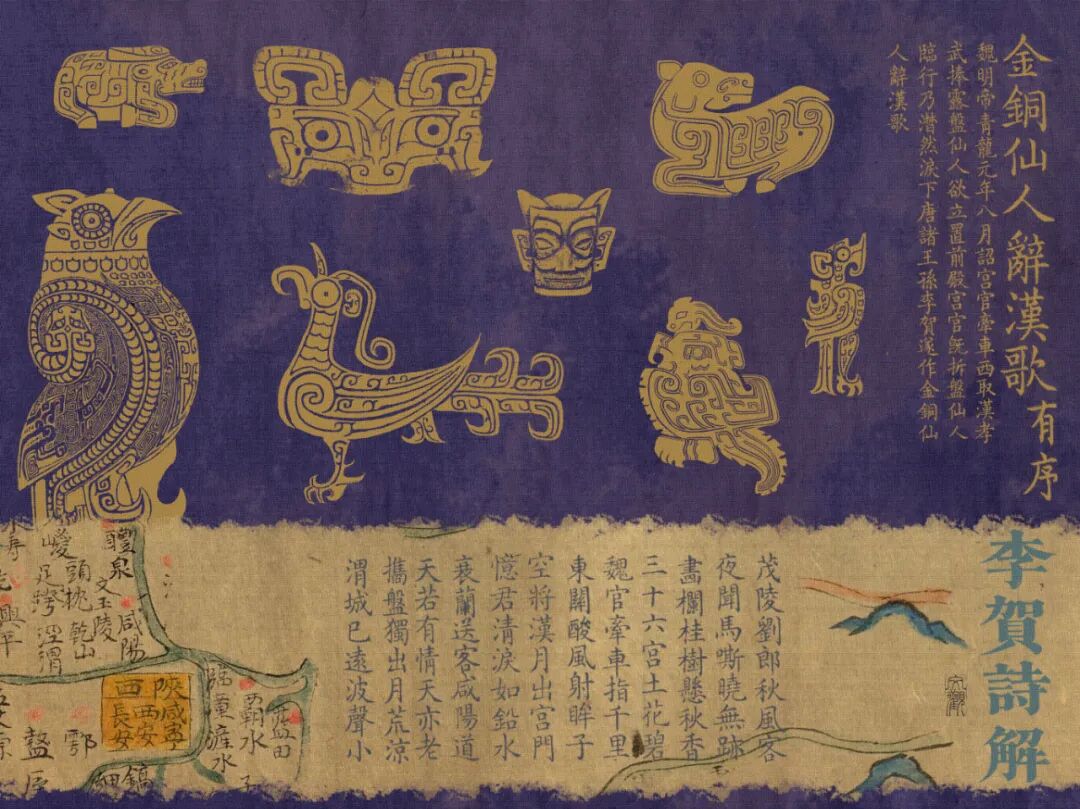 金銅仙人辭漢歌有序
魏明帝青龍元年八月詔宮官牽車西取漢孝
武捧露盤仙人欲立置前殿宮官既折盤仙人
臨行乃潸然淚下唐諸王孫李賀遂作金銅仙
人辭漢歌
李賀詩解
茂陵劉郎秋風客
夜聞馬嘶曉無跡
畫欄桂樹懸秋香
三十六宮土花碧
魏官牽車指千里
東關酸風射眸子
空將漢月出宮門
憶君清淚如鉛水
衰蘭送客咸陽道
天若有情天亦老
攜盤獨出月荒涼
渭城已遠波聲小
醴泉
文王陵
咸陽
頭枕乾山
涇渭
興平
咸寧
西安
長安
灞水
藍田
滻水
鄠
鎬